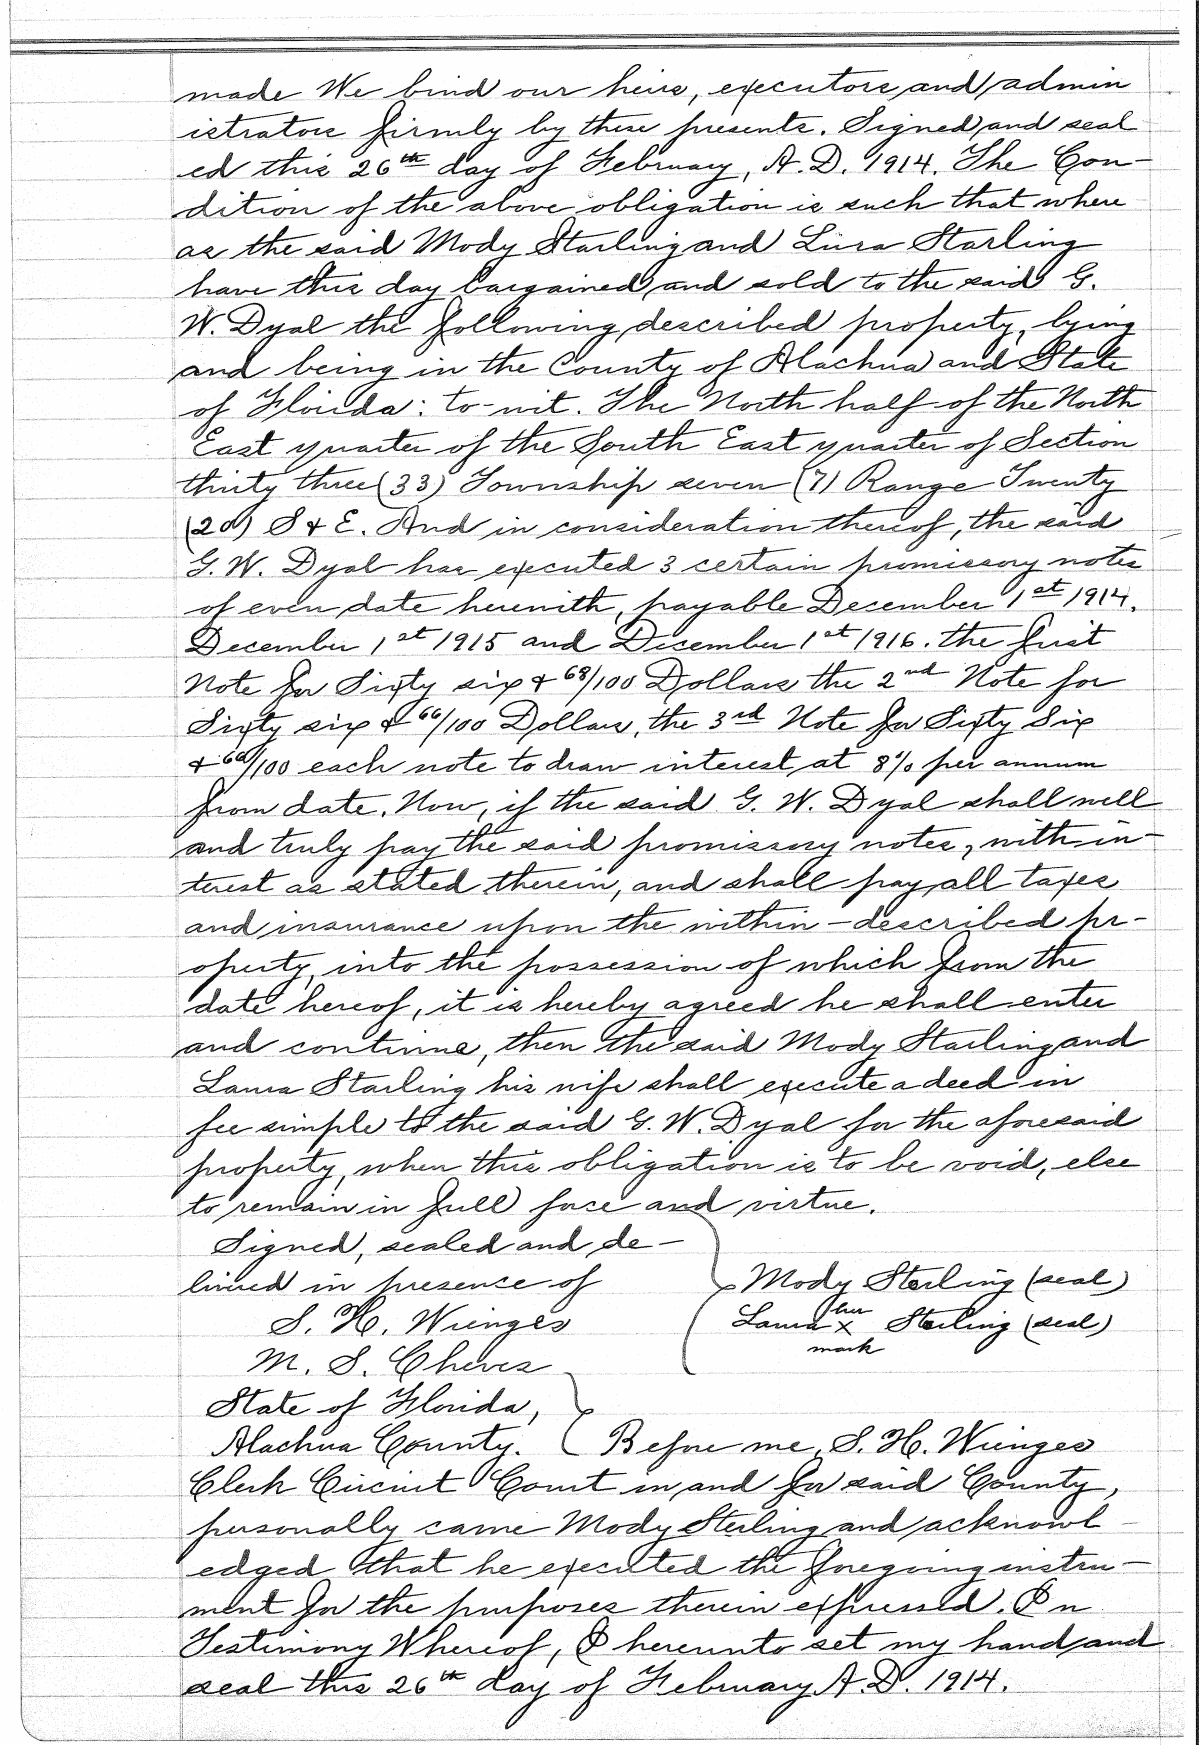 made We bind our heirs, executors and admin
istrators firmly by these presents. Signed and seal
ed this 26th day of February, A.D. 1914. The Con-
dition of the above obligation is such that where
as the said Mody Starling and Lura Starling
have this day bargained and sold to the said G.
W. Dyal the following described property, lying
and being in the County of Alachua and State
of Florida: to-wit. The North half of the North
East quarter of the South East quarter of Section
thirty three (33) Township seven (7) Range Twenty
(20) S & E. And in consideration thereof, the said
G. W. Dyal has executed 3 certain promissory notes
of even date herewith, payable December 1st 1914,
December 1st 1915 and December 1st 1916. the first
Note for Sixty six & 68/100 Dollars the 2nd Note for
Sixty six & 66/100 Dollars, the 3rd Note for Sixty Six
& 66/100 each note to draw interest at 8% per annum
from date. Now, if the said G. W. Dyal shall well
and truly pay the said promissory notes, with in-
terest as stated therein, and shall pay all taxes
and insurance upon the within-described pr-
operty, into the possession of which from the
date hereof, it is hereby agreed he shall enter
and continue, then the said Mody Starling and
Laura Starling his wife shall execute a deed in
fee simple to the said G. W. Dyal for the aforesaid
property, when this obligation is to be void, else
to remain in full force and virtue.
Signed, sealed and de-
livered in presence of
Mody Sterling (seal)
S. H. Wienges
Laura her x mark Sterling (seal)
M. S. Cheves
State of Florida,
Alachua County. Before me, S. H. Wienges
Clerk Circuit Court in and for said County,
personally came Mody Sterling and acknowl
edged that he executed the foregoing instru-
ment for the purposes therein expressed. In
Testimony Whereof, I hereunto set my hand and
seal this 26th day of February A.D. 1914.